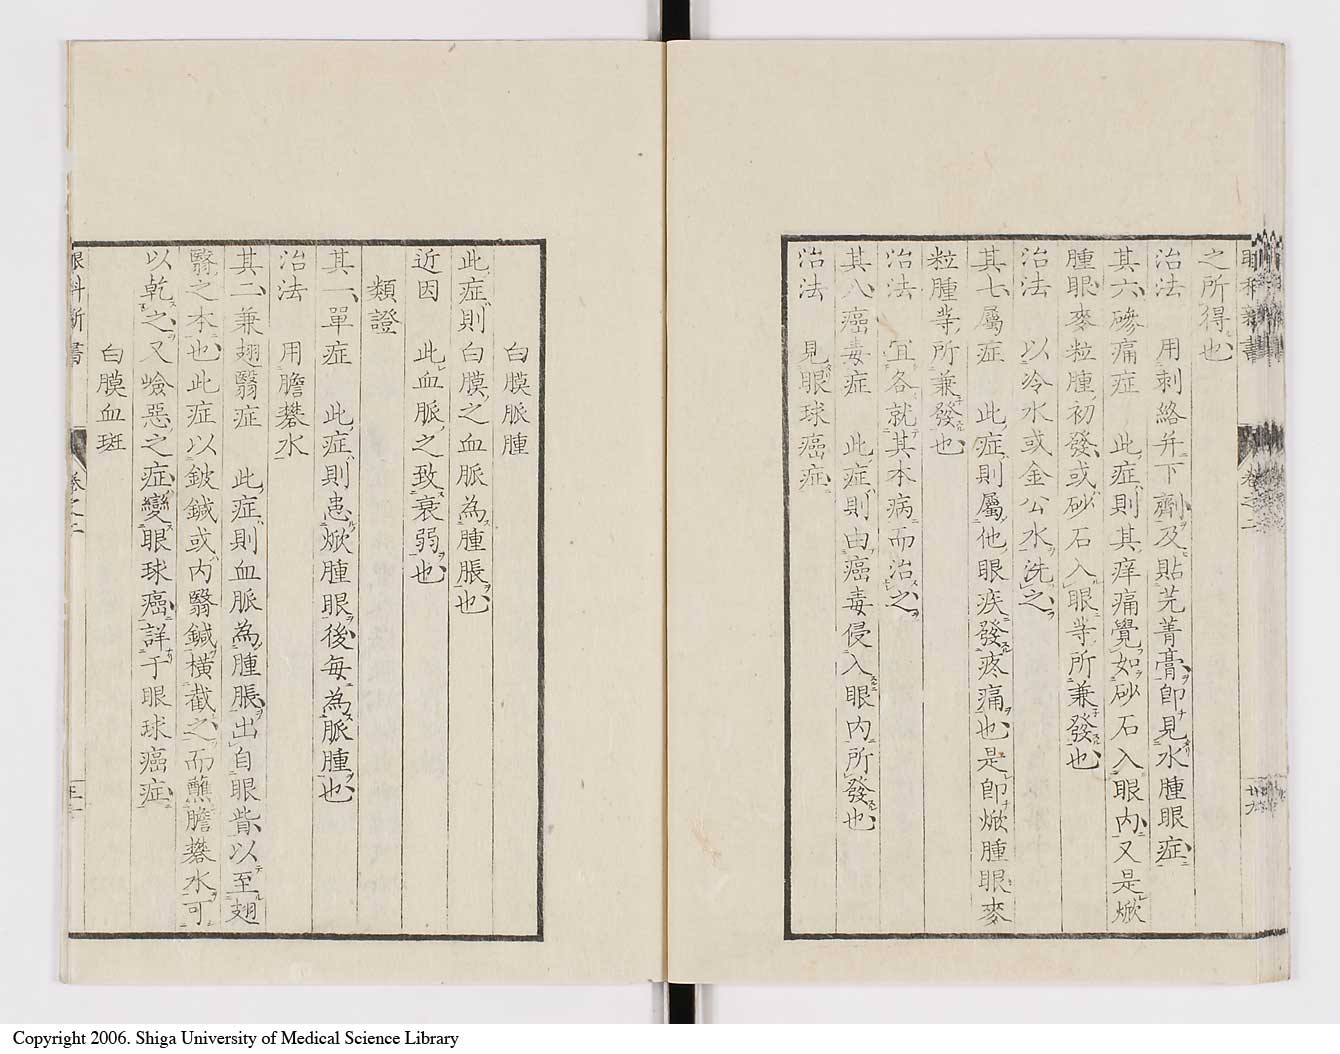 眼科新書 卷之二 廿九
之所得也
治法 用刺絡幷下劑及貼芫菁膏卽見水腫眼症
其六磣痛症 此症則其痒痛覺如砂石入眼內又是焮
腫眼麥粒腫初發或砂石入眼等所兼發也
治法 以冷水或金公水洗之
其七屬症 此症則屬他眼疾發疼痛也是卽焮腫眼麥
粒腫等所兼發也
治法 宜各就其本病而治之
其八癌毒症 此症則由癌毒侵入眼內所發也
治法 見眼球癌症
白膜脈腫
此症則白膜之血脈為腫脹也
近因 此血脈之致衰弱也
類證
其一單症 此症則患焮腫眼後每為脈腫也
治法 用膽礬水
其二兼翅翳症 此症則血脈為腫脹出自眼眥以至翅
翳之本也此症以鈹鍼或內翳鍼橫截之而蘸膽礬水可
以乾之又嶮惡之症變眼球癌詳于眼球癌症
白膜血斑
眼科新書 卷之二
Copyright 2006. Shiga University of Medical Science Library